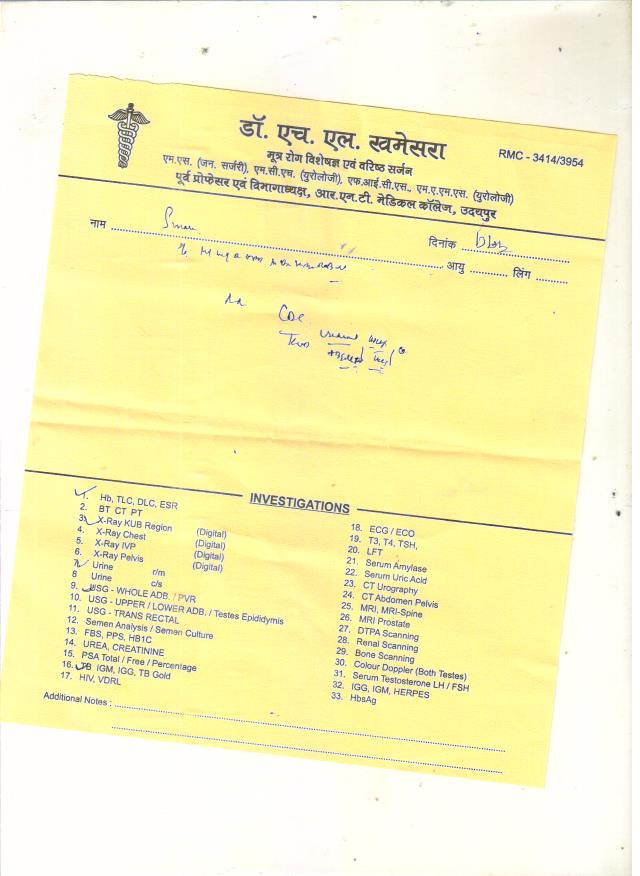 डॉ. एच. एल. खमेसरा
RMC - 3414/3954
मूत्र रोग विशेषज्ञ एवं वरिष्ठ सर्जन
एम.एस. (जन. सर्जरी), एम.सी.एच. (युरोलोजी), एफ.आई.सी.एस., एम.ए.एम.एस. (युरोलोजी)
पूर्व प्रोफेसर एवं विभागाध्यक्ष, आर.एन.टी. मेडिकल कॉलेज, उदयपुर
नाम
दिनांक
आयु लिंग
INVESTIGATIONS
1. Hb, TLC, DLC, ESR
2. BT CT PT
3. X-Ray KUB Region (Digital)
4. X-Ray Chest (Digital)
5. X-Ray IVP (Digital)
6. X-Ray Pelvis (Digital)
7. Urine r/m
8 Urine c/s
9. USG - WHOLE ADB. / PVR
10. USG - UPPER / LOWER ADB. / Testes Epididymis
11. USG - TRANS RECTAL
12. Semen Analysis / Semen Culture
13. FBS, PPS, HB1C
14. UREA, CREATININE
15. PSA Total / Free / Percentage
16. TB IGM, IGG, TB Gold
17. HIV, VDRL
18. ECG / ECO
19. T3, T4, TSH,
20. LFT
21. Serum Amylase
22. Serum Uric Acid
23. CT Urography
24. CT Abdomen Pelvis
25. MRI, MRI-Spine
26. MRI Prostate
27. DTPA Scanning
28. Renal Scanning
29. Bone Scanning
30. Colour Doppler (Both Testes)
31. Serum Testosterone LH / FSH
32. IGG, IGM, HERPES
33. HbsAg
Additional Notes :